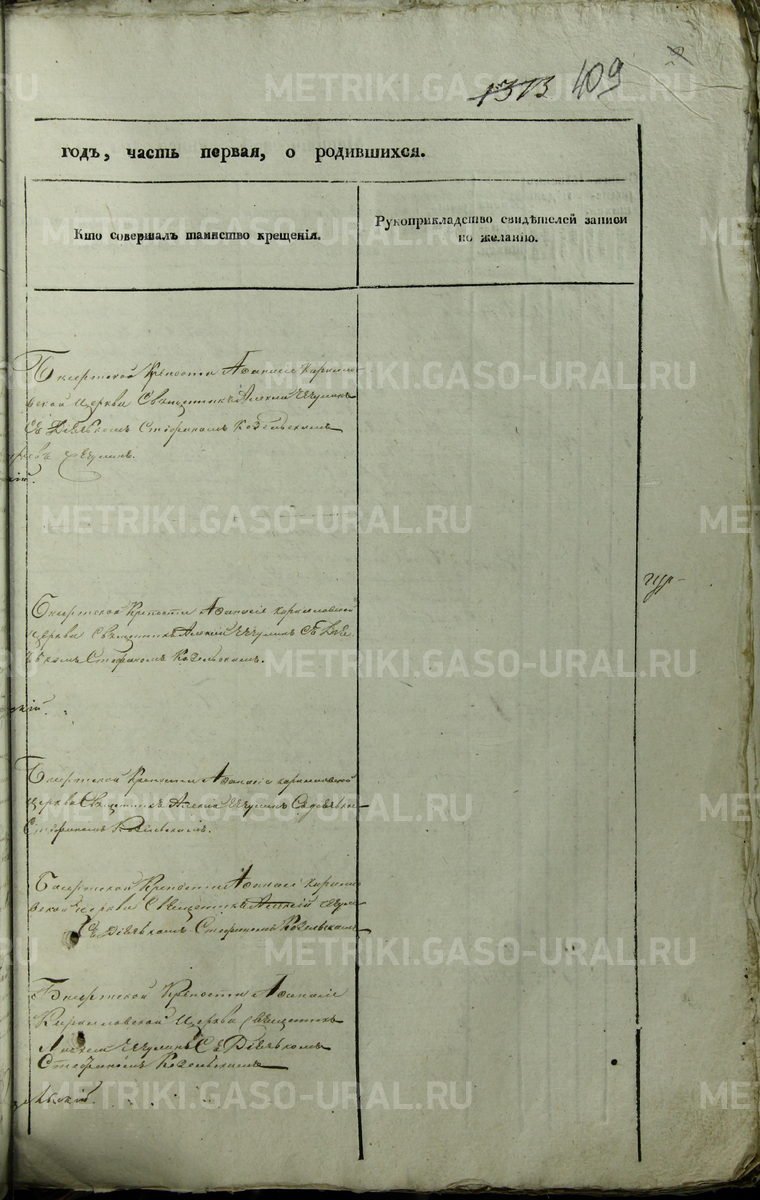 1373 409
годъ, часть первая, о родившихся.
Кто совершалъ таинство крещенія.
Рукоприкладство свидѣтелей записи
по желанію.
Крѣпости Аѳанасіе Кирило
вской Церкви Священникъ Алексій Чечулинъ
Съ Дьячкомъ Стефаномъ Козельскимъ
Чечулинъ.
Крепости Аѳанасіе Кириловской
церкви Священникъ Алексій Чечулинъ Съ Дья
чкомъ Стефаномъ Козельскимъ.
Крепости Аѳанасіе кириловской
церкви Священникъ Алексій Чечулинъ
Стефаномъ Козельскимъ.
Крепости Аѳанасіе Кирило
вской церкви Священникъ Алексій
Съ Дьячкомъ Стефаномъ Козельскимъ
Крепости Аѳанасіе
Кириловской Церкви Священникъ
Алексій Чечулинъ Съ Дьячкомъ
Стефаномъ Козельскимъ
METRIKI.GASO-URAL.RU